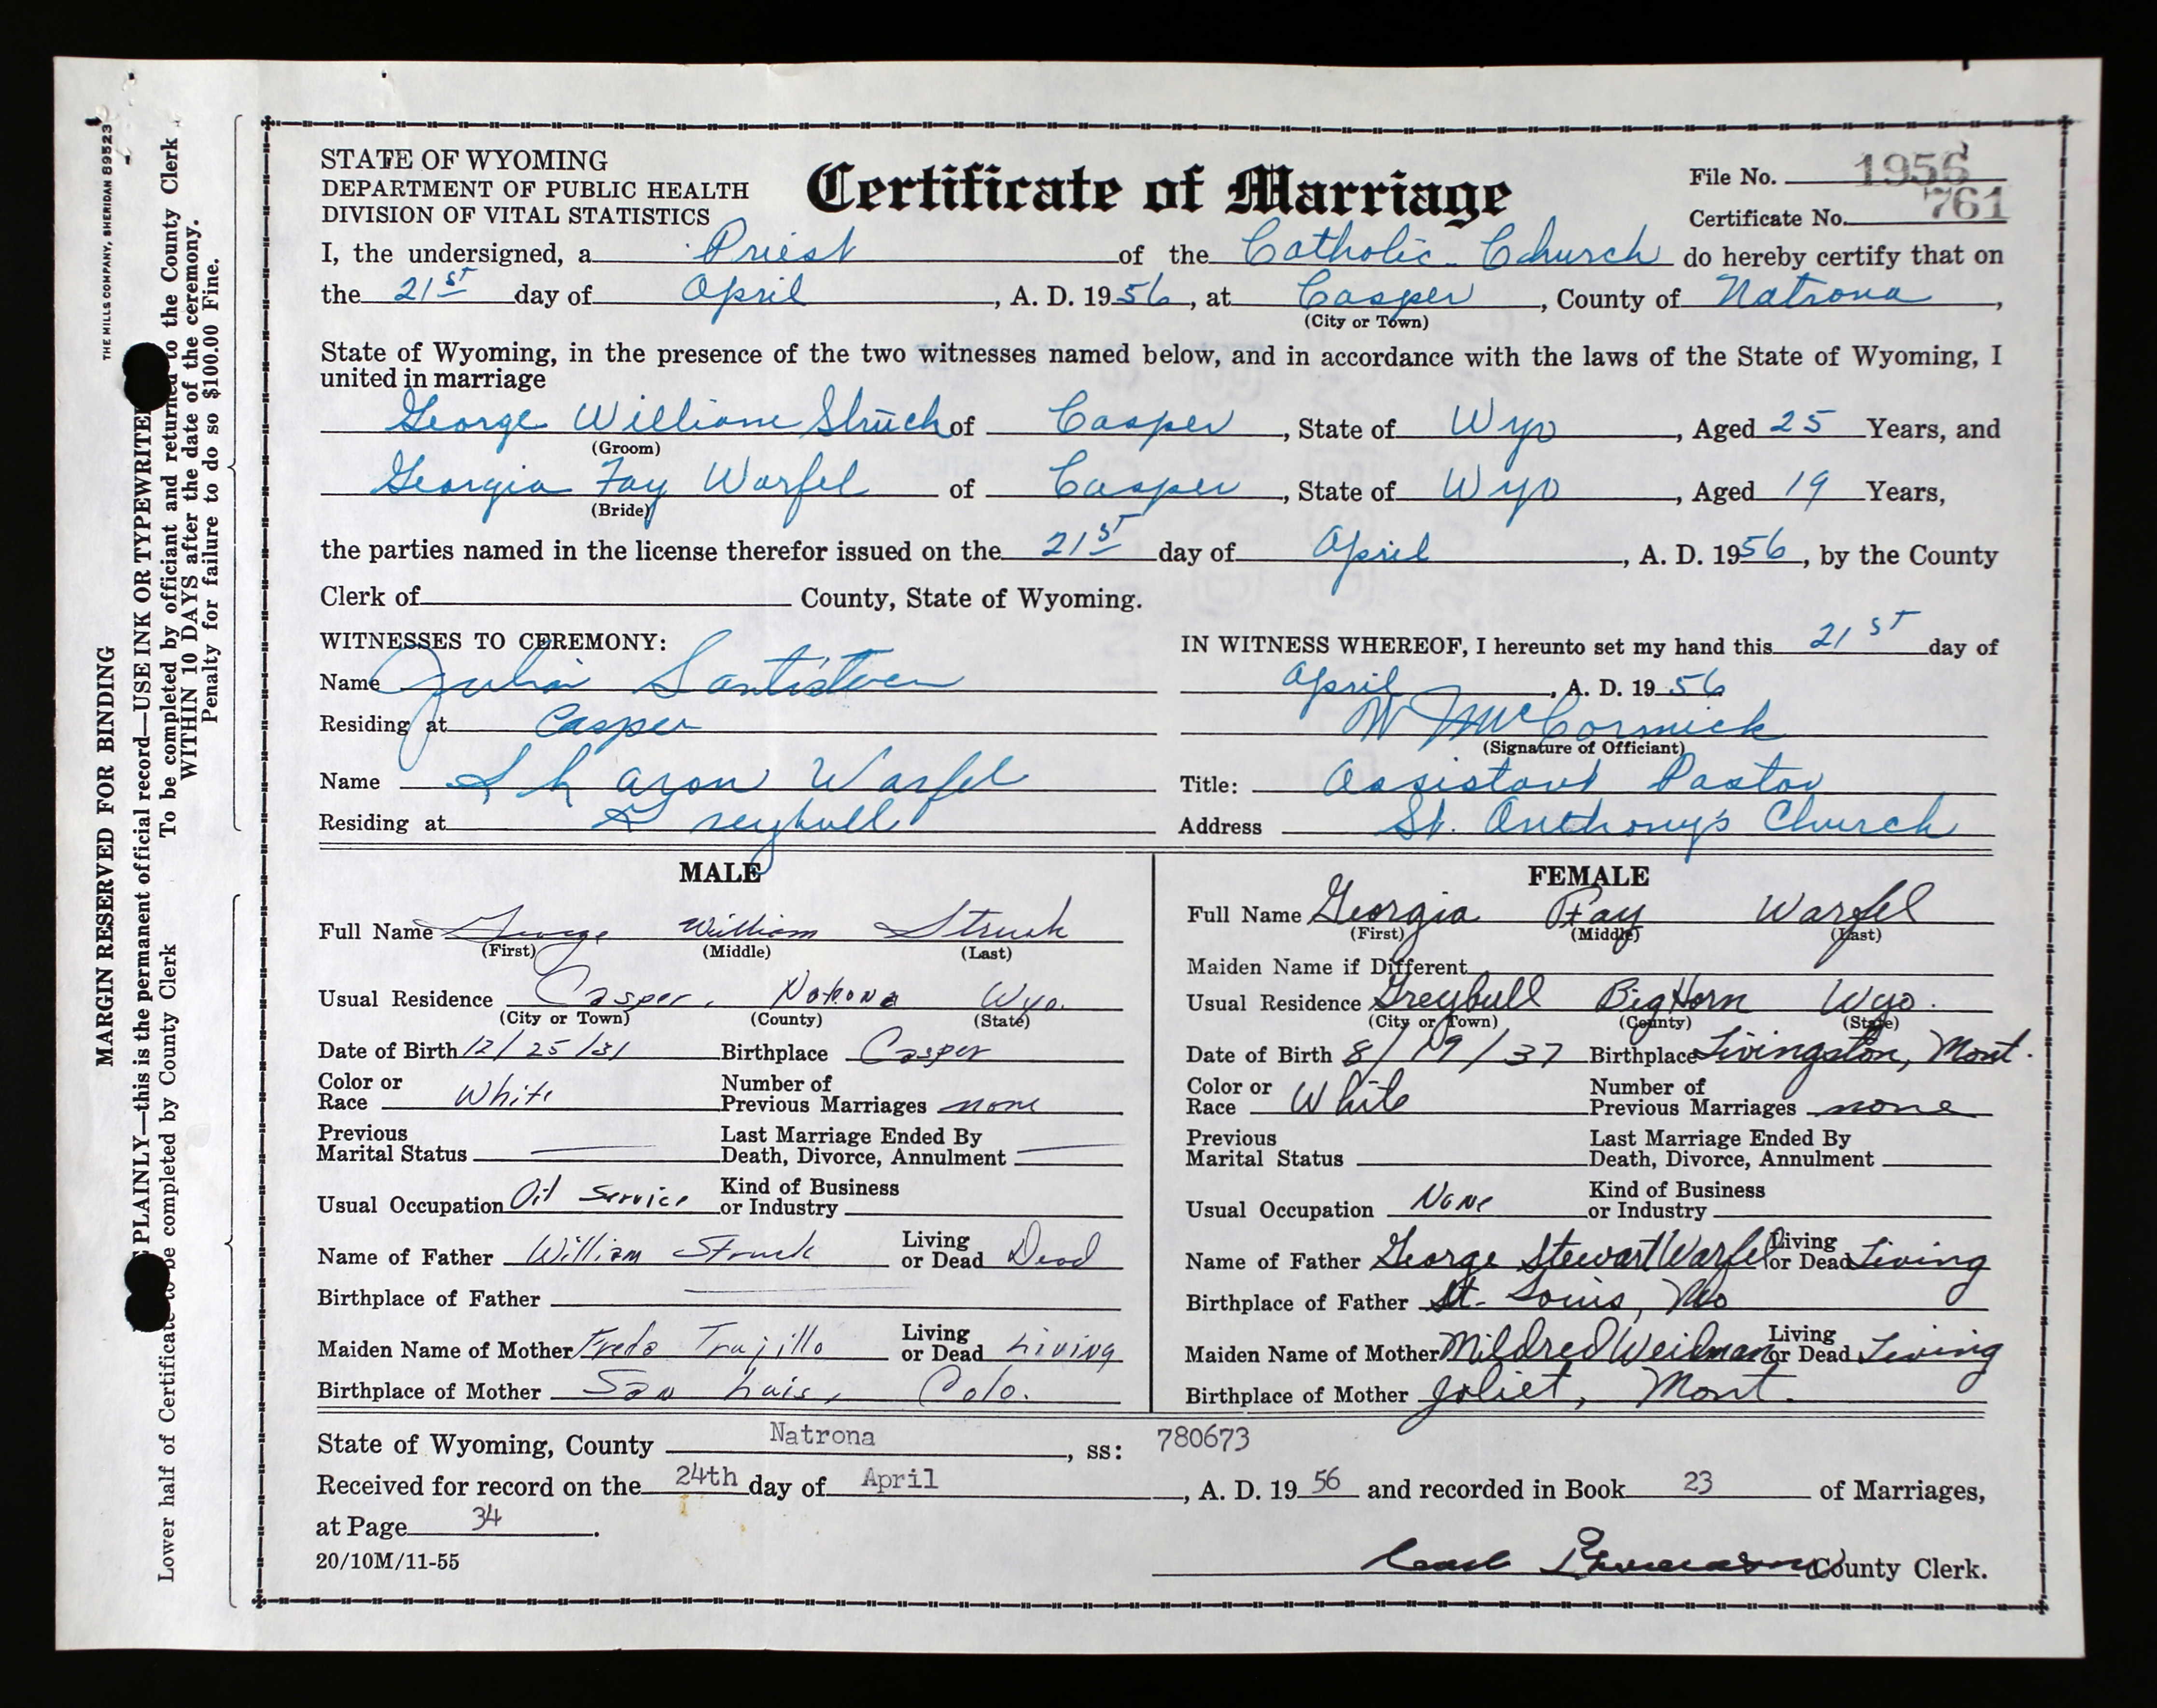 STATE OF WYOMING
DEPARTMENT OF PUBLIC HEALTH
DIVISION OF VITAL STATISTICS
Certificate of Marriage
File No. 1956
Certificate No. 761
I, the undersigned, a Priest of the Catholic Church do hereby certify that on
the 21st day of April, A. D. 1956, at Casper, County of Natrona,
(City or Town)
State of Wyoming, in the presence of the two witnesses named below, and in accordance with the laws of the State of Wyoming, I
united in marriage
George William Struck of Casper, State of Wyo, Aged 25 Years, and
(Groom)
Georgia Fay Warfel of Casper, State of Wyo, Aged 19 Years,
(Bride)
the parties named in the license therefor issued on the 21st day of April, A. D. 1956, by the County
Clerk of County, State of Wyoming.
WITNESSES TO CEREMONY:
Name Julia Santistven
Residing at Casper
Name Sharon Warfel
Residing at Greybull
IN WITNESS WHEREOF, I hereunto set my hand this 21st day of
April, A. D. 1956
W McCormick
(Signature of Officiant)
Title: Assistant Pastor
Address St. Anthony's Church
MALE
Full Name George William Struck
(First) (Middle) (Last)
Usual Residence Casper, Natrona Wyo.
(City or Town) (County) (State)
Date of Birth 12/25/31 Birthplace Casper
Color or Race White Number of Previous Marriages none
Previous Marital Status — Last Marriage Ended By Death, Divorce, Annulment —
Usual Occupation Oil Service Kind of Business or Industry
Name of Father William Struck Living or Dead Dead
Birthplace of Father —
Maiden Name of Mother Freda Trujillo Living or Dead Living
Birthplace of Mother San Luis, Colo.
FEMALE
Full Name Georgia Fay Warfel
(First) (Middle) (Last)
Maiden Name if Different
Usual Residence Greybull Big Horn Wyo.
(City or Town) (County) (State)
Date of Birth 8/19/37 Birthplace Livingston, Mont.
Color or Race White Number of Previous Marriages none
Previous Marital Status Last Marriage Ended By Death, Divorce, Annulment
Usual Occupation None Kind of Business or Industry
Name of Father George Stewart Warfel Living or Dead Living
Birthplace of Father St. Louis, Mo
Maiden Name of Mother Mildred Weidman Living or Dead Living
Birthplace of Mother Joliet, Mont.
State of Wyoming, County Natrona, ss: 780673
Received for record on the 24th day of April, A. D. 1956 and recorded in Book 23 of Marriages,
at Page 34.
20/10M/11-55
County Clerk.
THE MILLS COMPANY, SHERIDAN 89523
MARGIN RESERVED FOR BINDING
PLAINLY—this is the permanent official record—USE INK OR TYPEWRITER
To be completed by officiant and returned to the County Clerk
WITHIN 10 DAYS after the date of the ceremony.
Penalty for failure to do so $100.00 Fine.
Lower half of Certificate to be completed by County Clerk